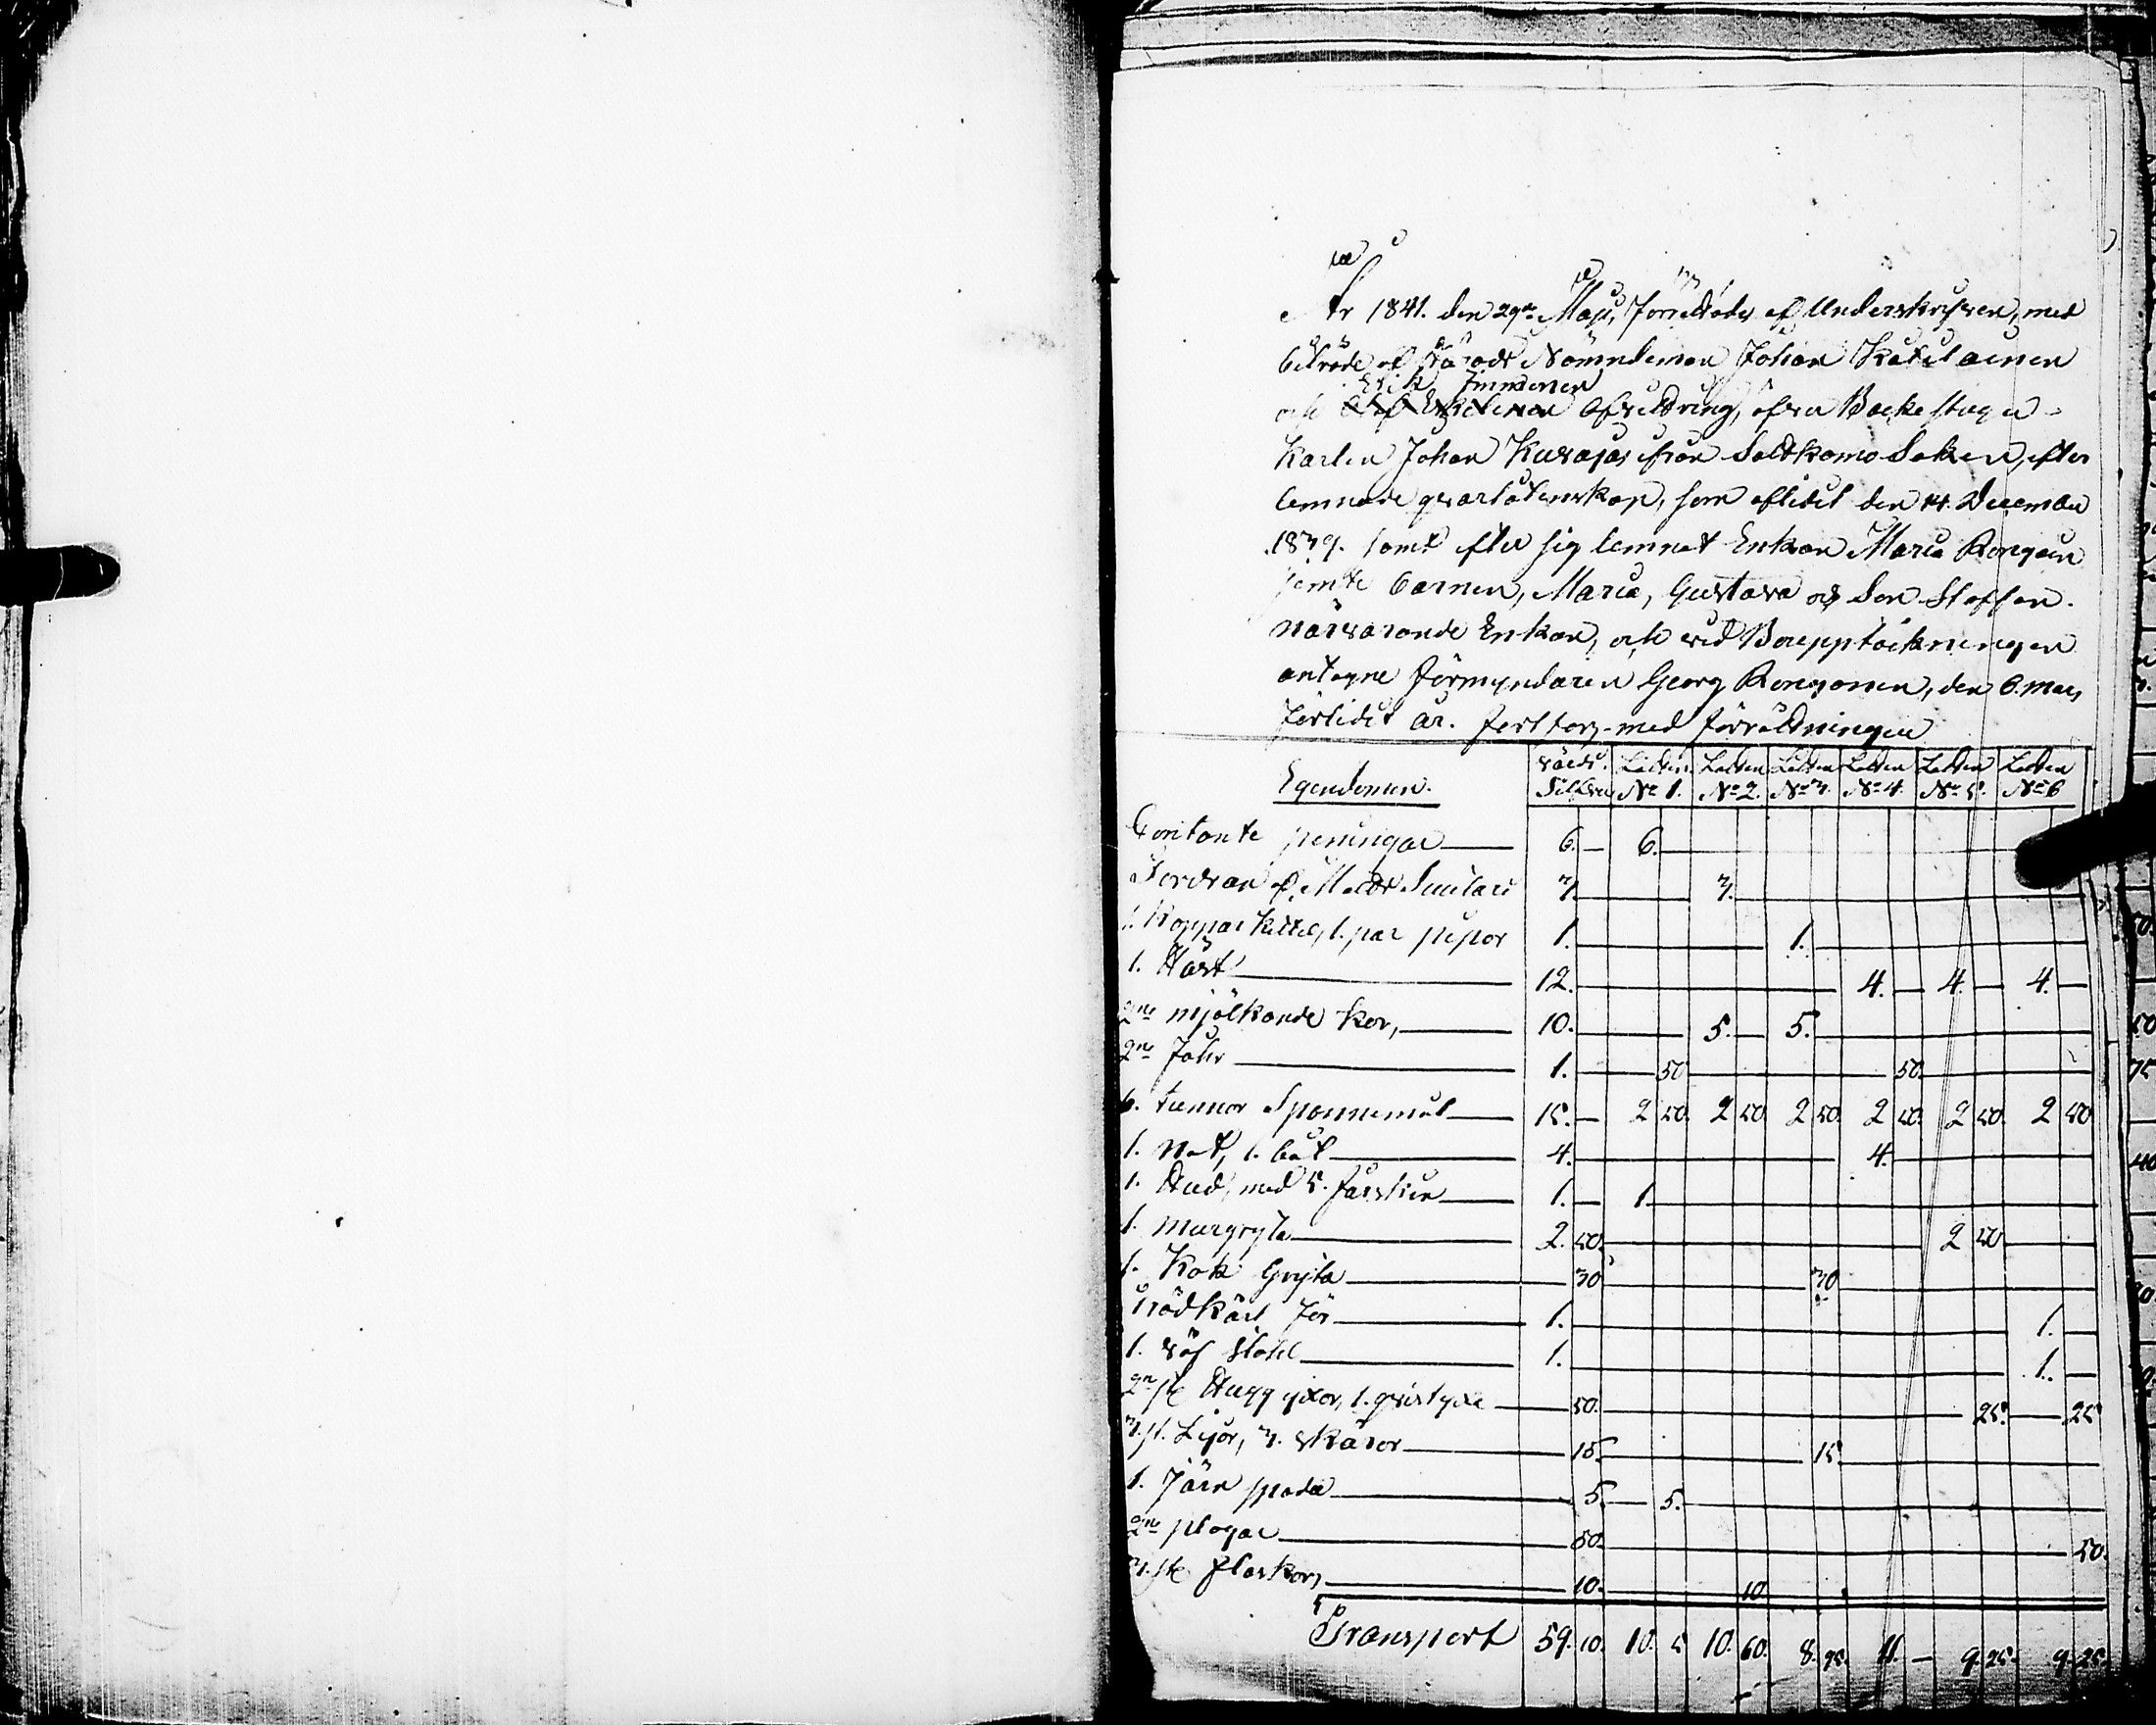 År 1841. den 29de Maji, förrättades af Underskrifven, med
biträde af Nämndeman Johan Katilainen
Erik Immonen
och Afvittring, efter Backstugu-
Karlen Johan Kurajas ifrån Sotkamo Soken, efter
lemnade qvarlåtenskap, som aflidit den 14. December
1839. samt efter sig lemnat Enkan Maria Rongain
jemte barnen, Maria, Gustava och Son Staffan.
närvarande Enkan, och vid Bouppteckningen
antagne förmyndaren Georg Rongonen, den 6. Mars
förlidit år. med förrättningen
Egendomen. Värde. Silfver Lotten No 1. Lotten No 2. Lotten No 3. Lotten No 4. Lotten No 5. Lotten No 6
Contante peningar 6. 6.
Fordran af 3. 3.
1. Koppar kittel, 1. par pipor 1. 1.
1. Häst 12. 4. 4. 4.
2ne mjölkande kor, 10. 5. 5.
2ne Fåhr 1. 50 50.
6. tunnor Spannemål 15. 2 50. 2 50 2 50. 2 50. 2 50. 2 50
1. Not, 1. båt 4. 4.
1. Hud, med 5. fårskin 1. 1
1. Murgryta 2. 50. 2 50
1. Kok Gryta 30 30
Trädkärl för 1. 1.
1. Väf stohl 1. 1.
2ne st Hugg yxor, 1. qvistyxa 50. 25. 25
3. st. Lijor, 3. skäror 15. 15.
1. Järn spada 5. 5.
2ne plogar 50. 50.
3. st flaskor, 10. 10
Transport 59. 10. 10. 5 10. 60. 8. 95. 11. 9. 25. 9. 25.